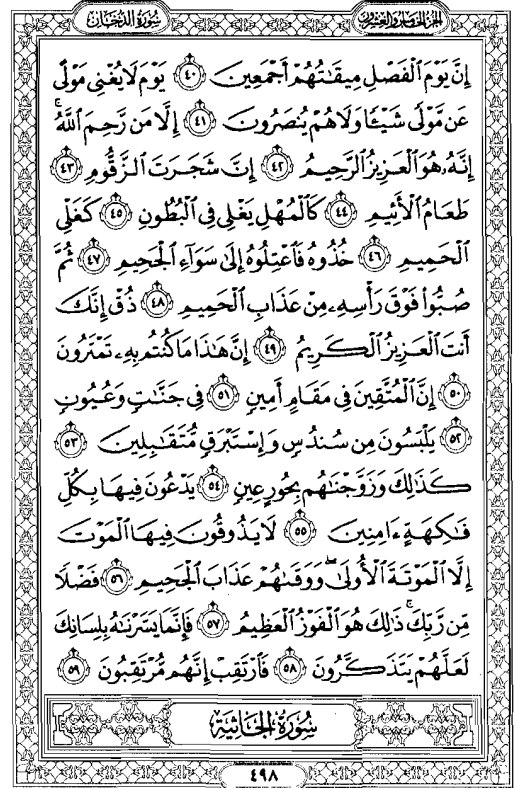 سُورَةُ الدُّخَانِ الجُزْءُ الخَامِسُ وَالعِشْرُونَ
إِنَّ يَوْمَ ٱلْفَصْلِ مِيقَٰتُهُمْ أَجْمَعِينَ ٤٠ يَوْمَ لَا يُغْنِى مَوْلًى
عَن مَّوْلًى شَيْـًٔا وَلَا هُمْ يُنصَرُونَ ٤١ إِلَّا مَن رَّحِمَ ٱللَّهُ ۚ
إِنَّهُۥ هُوَ ٱلْعَزِيزُ ٱلرَّحِيمُ ٤٢ إِنَّ شَجَرَتَ ٱلزَّقُّومِ ٤٣
طَعَامُ ٱلْأَثِيمِ ٤٤ كَٱلْمُهْلِ يَغْلِى فِى ٱلْبُطُونِ ٤٥ كَغَلْىِ
ٱلْحَمِيمِ ٤٦ خُذُوهُ فَٱعْتِلُوهُ إِلَىٰ سَوَآءِ ٱلْجَحِيمِ ٤٧ ثُمَّ
صُبُّوا۟ فَوْقَ رَأْسِهِۦ مِنْ عَذَابِ ٱلْحَمِيمِ ٤٨ ذُقْ إِنَّكَ
أَنتَ ٱلْعَزِيزُ ٱلْكَرِيمُ ٤٩ إِنَّ هَٰذَا مَا كُنتُم بِهِۦ تَمْتَرُونَ
٥٠ إِنَّ ٱلْمُتَّقِينَ فِى مَقَامٍ أَمِينٍ ٥١ فِى جَنَّٰتٍ وَعُيُونٍ
٥٢ يَلْبَسُونَ مِن سُندُسٍ وَإِسْتَبْرَقٍ مُّتَقَٰبِلِينَ ٥٣
كَذَٰلِكَ وَزَوَّجْنَٰهُم بِحُورٍ عِينٍ ٥٤ يَدْعُونَ فِيهَا بِكُلِّ
فَٰكِهَةٍ ءَامِنِينَ ٥٥ لَا يَذُوقُونَ فِيهَا ٱلْمَوْتَ
إِلَّا ٱلْمَوْتَةَ ٱلْأُولَىٰ ۖ وَوَقَىٰهُمْ عَذَابَ ٱلْجَحِيمِ ٥٦ فَضْلًا
مِّن رَّبِّكَ ۚ ذَٰلِكَ هُوَ ٱلْفَوْزُ ٱلْعَظِيمُ ٥٧ فَإِنَّمَا يَسَّرْنَٰهُ بِلِسَانِكَ
لَعَلَّهُمْ يَتَذَكَّرُونَ ٥٨ فَٱرْتَقِبْ إِنَّهُم مُّرْتَقِبُونَ ٥٩
سُورَةُ الجَاثِيَةِ
٤٩٨